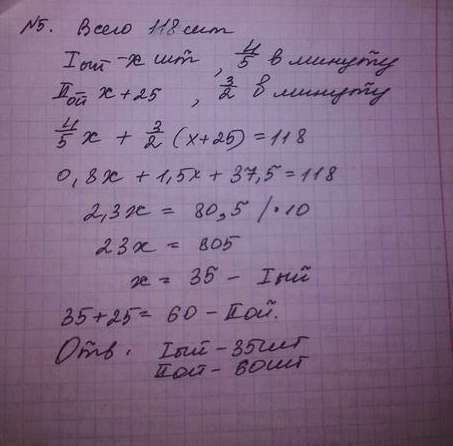 №5. Всего 118 шт
Iый - х шт , 4/5 в минуту
IIой х + 25 , 3/2 в минуту
4/5 х + 3/2 (х+25) = 118
0,8х + 1,5х + 37,5 = 118
2,3х = 80,5 /·10
23х = 805
х = 35 - Iый
35+25 = 60 - IIой.
Отв. Iый - 35шт
IIой - 60шт